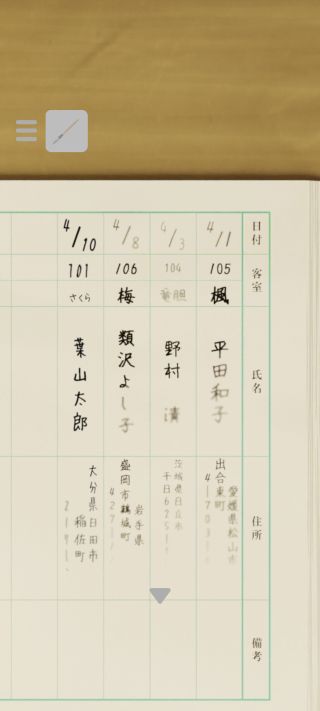 日付
客室
氏名
住所
備考
4/1
105
楓
平田和子
愛媛県松山市
出合東町
4/3
104
竜胆
野村 清
茨城県日立市
4/8
106
梅
類沢よし子
岩手県
盛岡市鶴城町
4/10
101
さくら
葉山太郎
大分県日田市
稲佐町